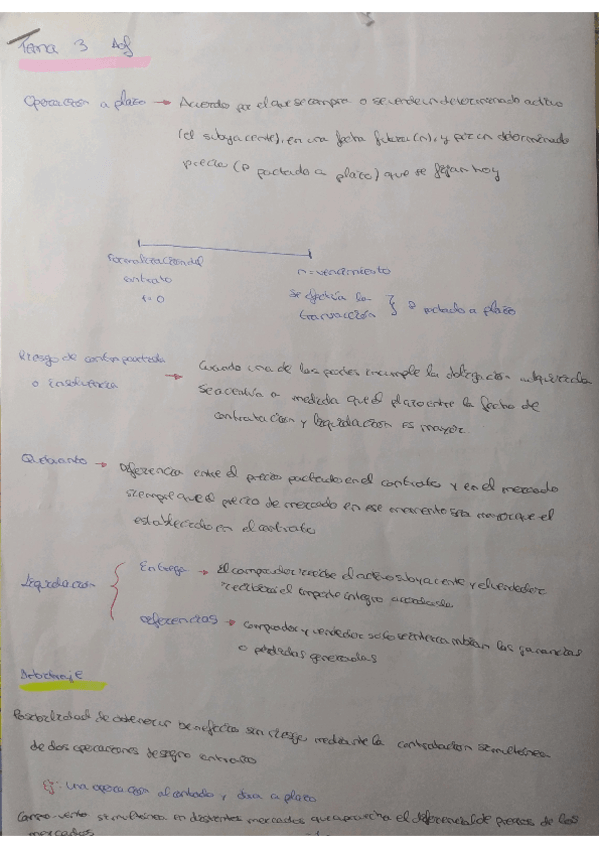 Tema 3
Operacion a plazo → Acuerdo por el que se compra o se vende un determinado activo
(el subyacente), en una fecha futura (n), y por un determinado
precio (P pactado a plazo) que se fijan hoy
Formalizacion del
contrato
t=0
n=vencimiento
se efectúa la
transacción } P pactado a plazo
Riesgo de contrapartida
o insolvencia → Cuando una de las partes incumple la obligacion adquirida
Se acentúa a medida que el plazo entre la fecha de
contratacion y liquidacion es mayor.
Quebranto → Diferencia entre el precio pactado en el contrato y en el mercado
siempre que el precio de mercado en ese momento sea que el
establecido en el contrato
Liquidacion { Entrega → El comprador recibe el activo subyacente y el vendedor
el importe íntegro
diferencias → comprador y vendedor solo se intercambian las ganancias
o pérdidas generadas
Arbitraje
Posibilidad de obtener un beneficio sin riesgo mediante la contratacion simultánea
de dos operaciones de signo contrario
Ej: una operacion al contado y otra a plazo
Compra-venta simultánea en distintos mercados que aprovecha el diferencial de precios de los
mercados